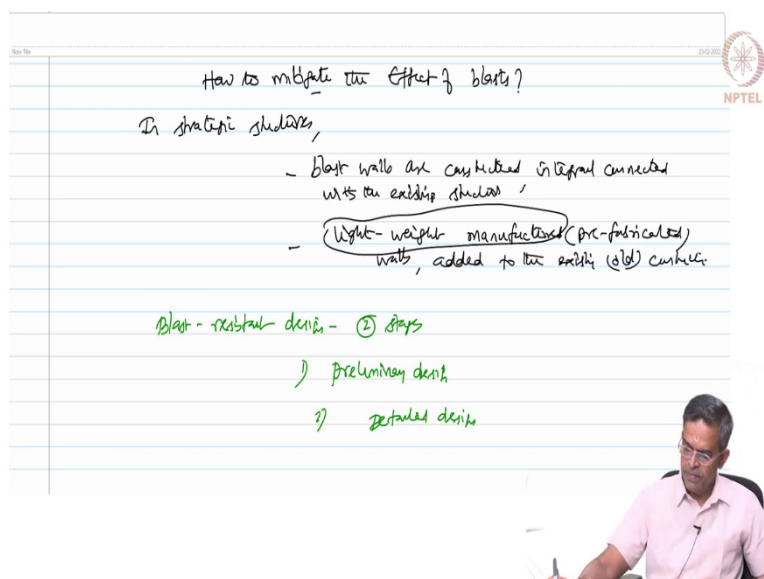 Note Title
23-02-2022
NPTEL
How to mitigate the effect of blasts?
In strategic structures,
- blast walls are constructed integral connected
with the existing structures,
- (light-weight manufactured (pre-fabricated)
walls, added to the existing (old) construction
Blast-resistant design - ② steps
1) preliminary design
2) Detailed design